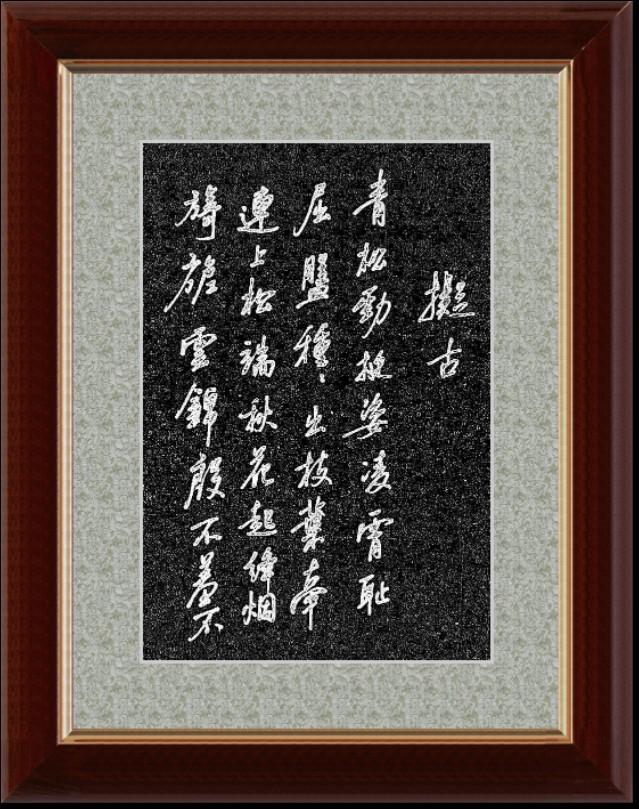 擬古
青松勁挺姿凌霄耻
屈盤種〻出枝葉牽
連上松端秋花起絳烟
旖旎雲錦殷不羞不